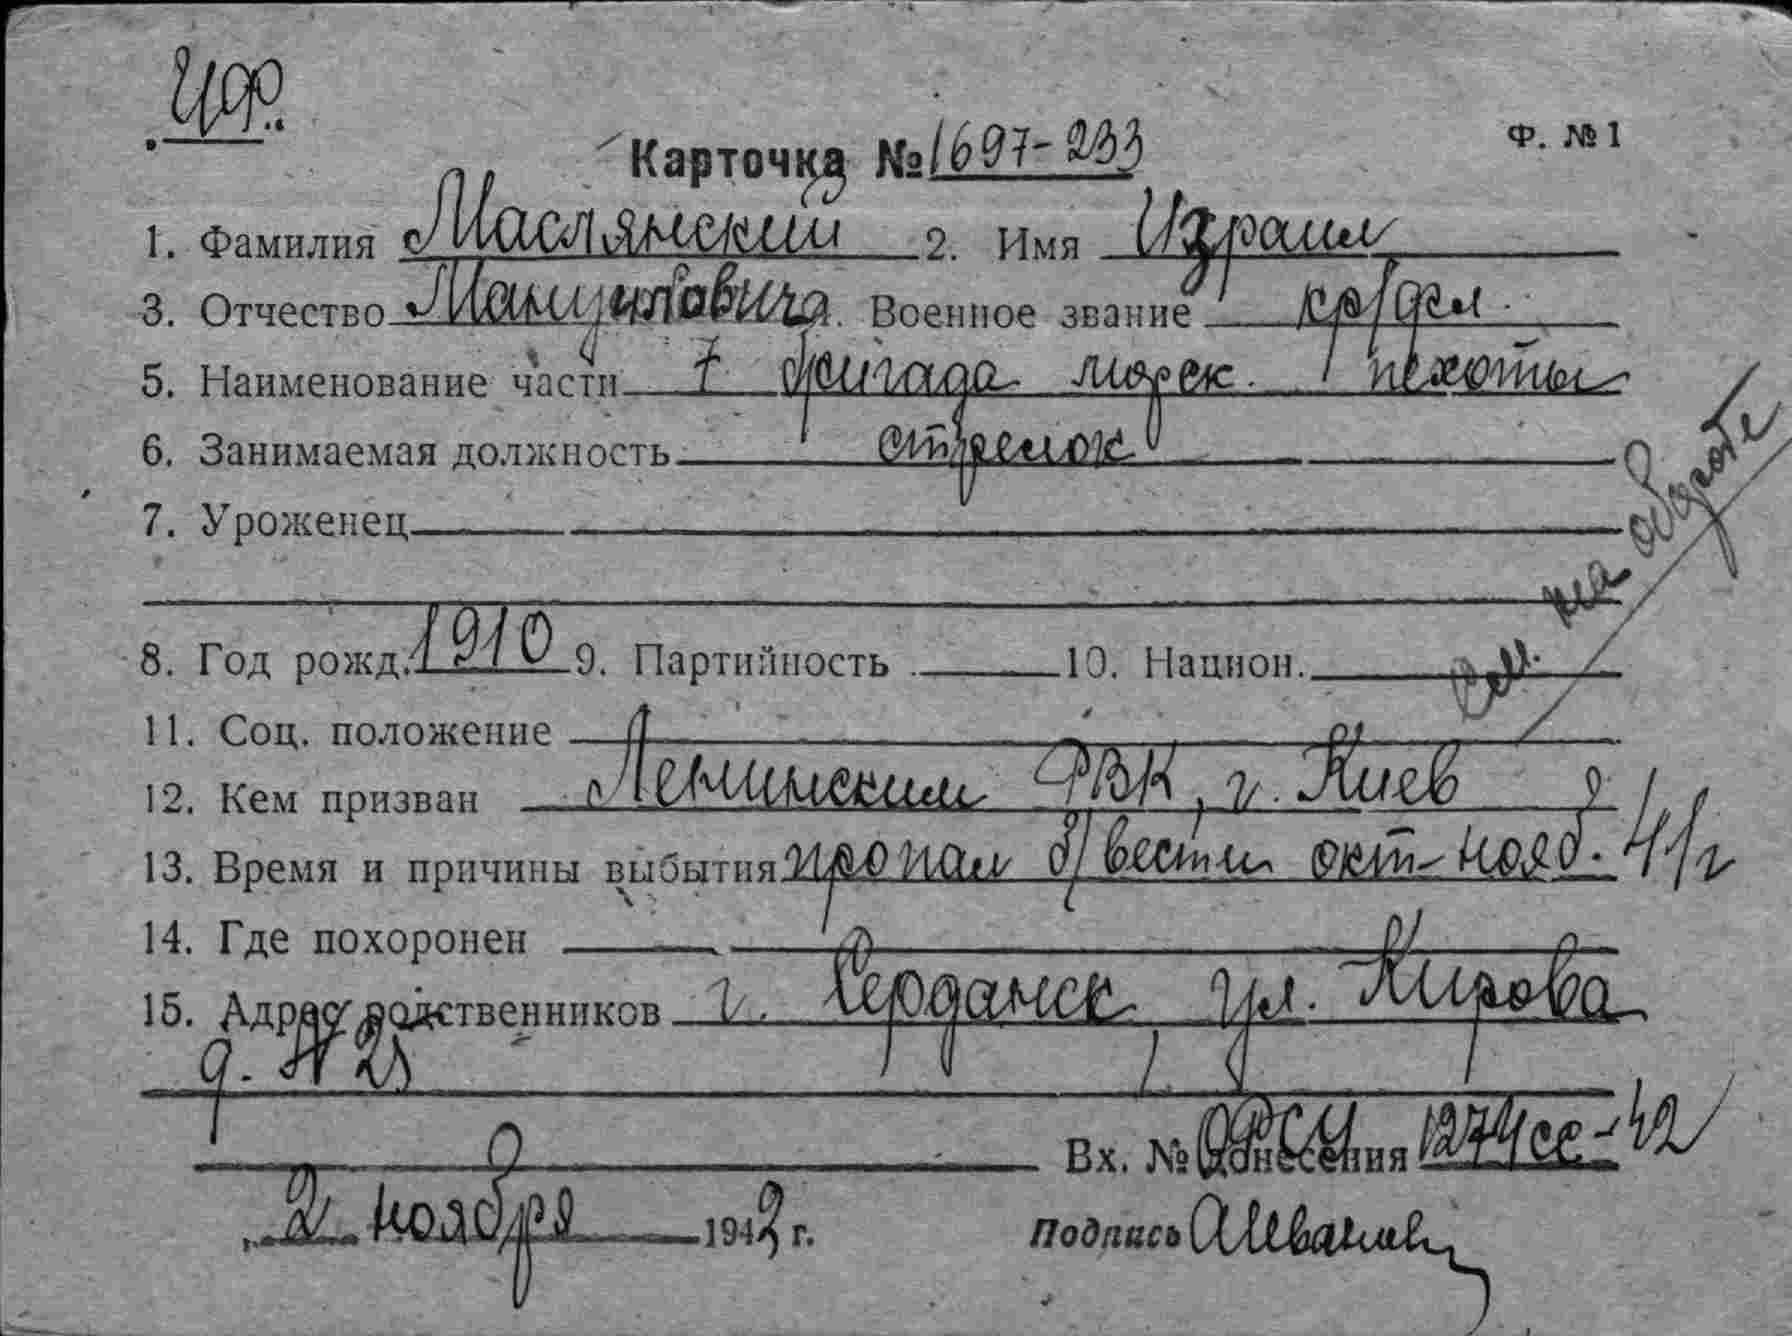 Ф. № 1
Карточка № 1697-233
1. Фамилия Маслянский 2. Имя Израил
3. Отчество Военное звание кр/фл.
5. Наименование части 7 бригада морск. пехоты
6. Занимаемая должность стрелок
7. Уроженец
см. на обороте
8. Год рожд. 1910 9. Партийность 10. Национ.
11. Соц. положение
12. Кем призван Ленинским РВК, г. Киев
13. Время и причины выбытия пропал б/вести окт-нояб. 41 г
14. Где похоронен
15. Адрес родственников г. ул. Кирова
д. № 25
Вх. № донесения 1274сс-42
2 ноября 1942 г. Подпись